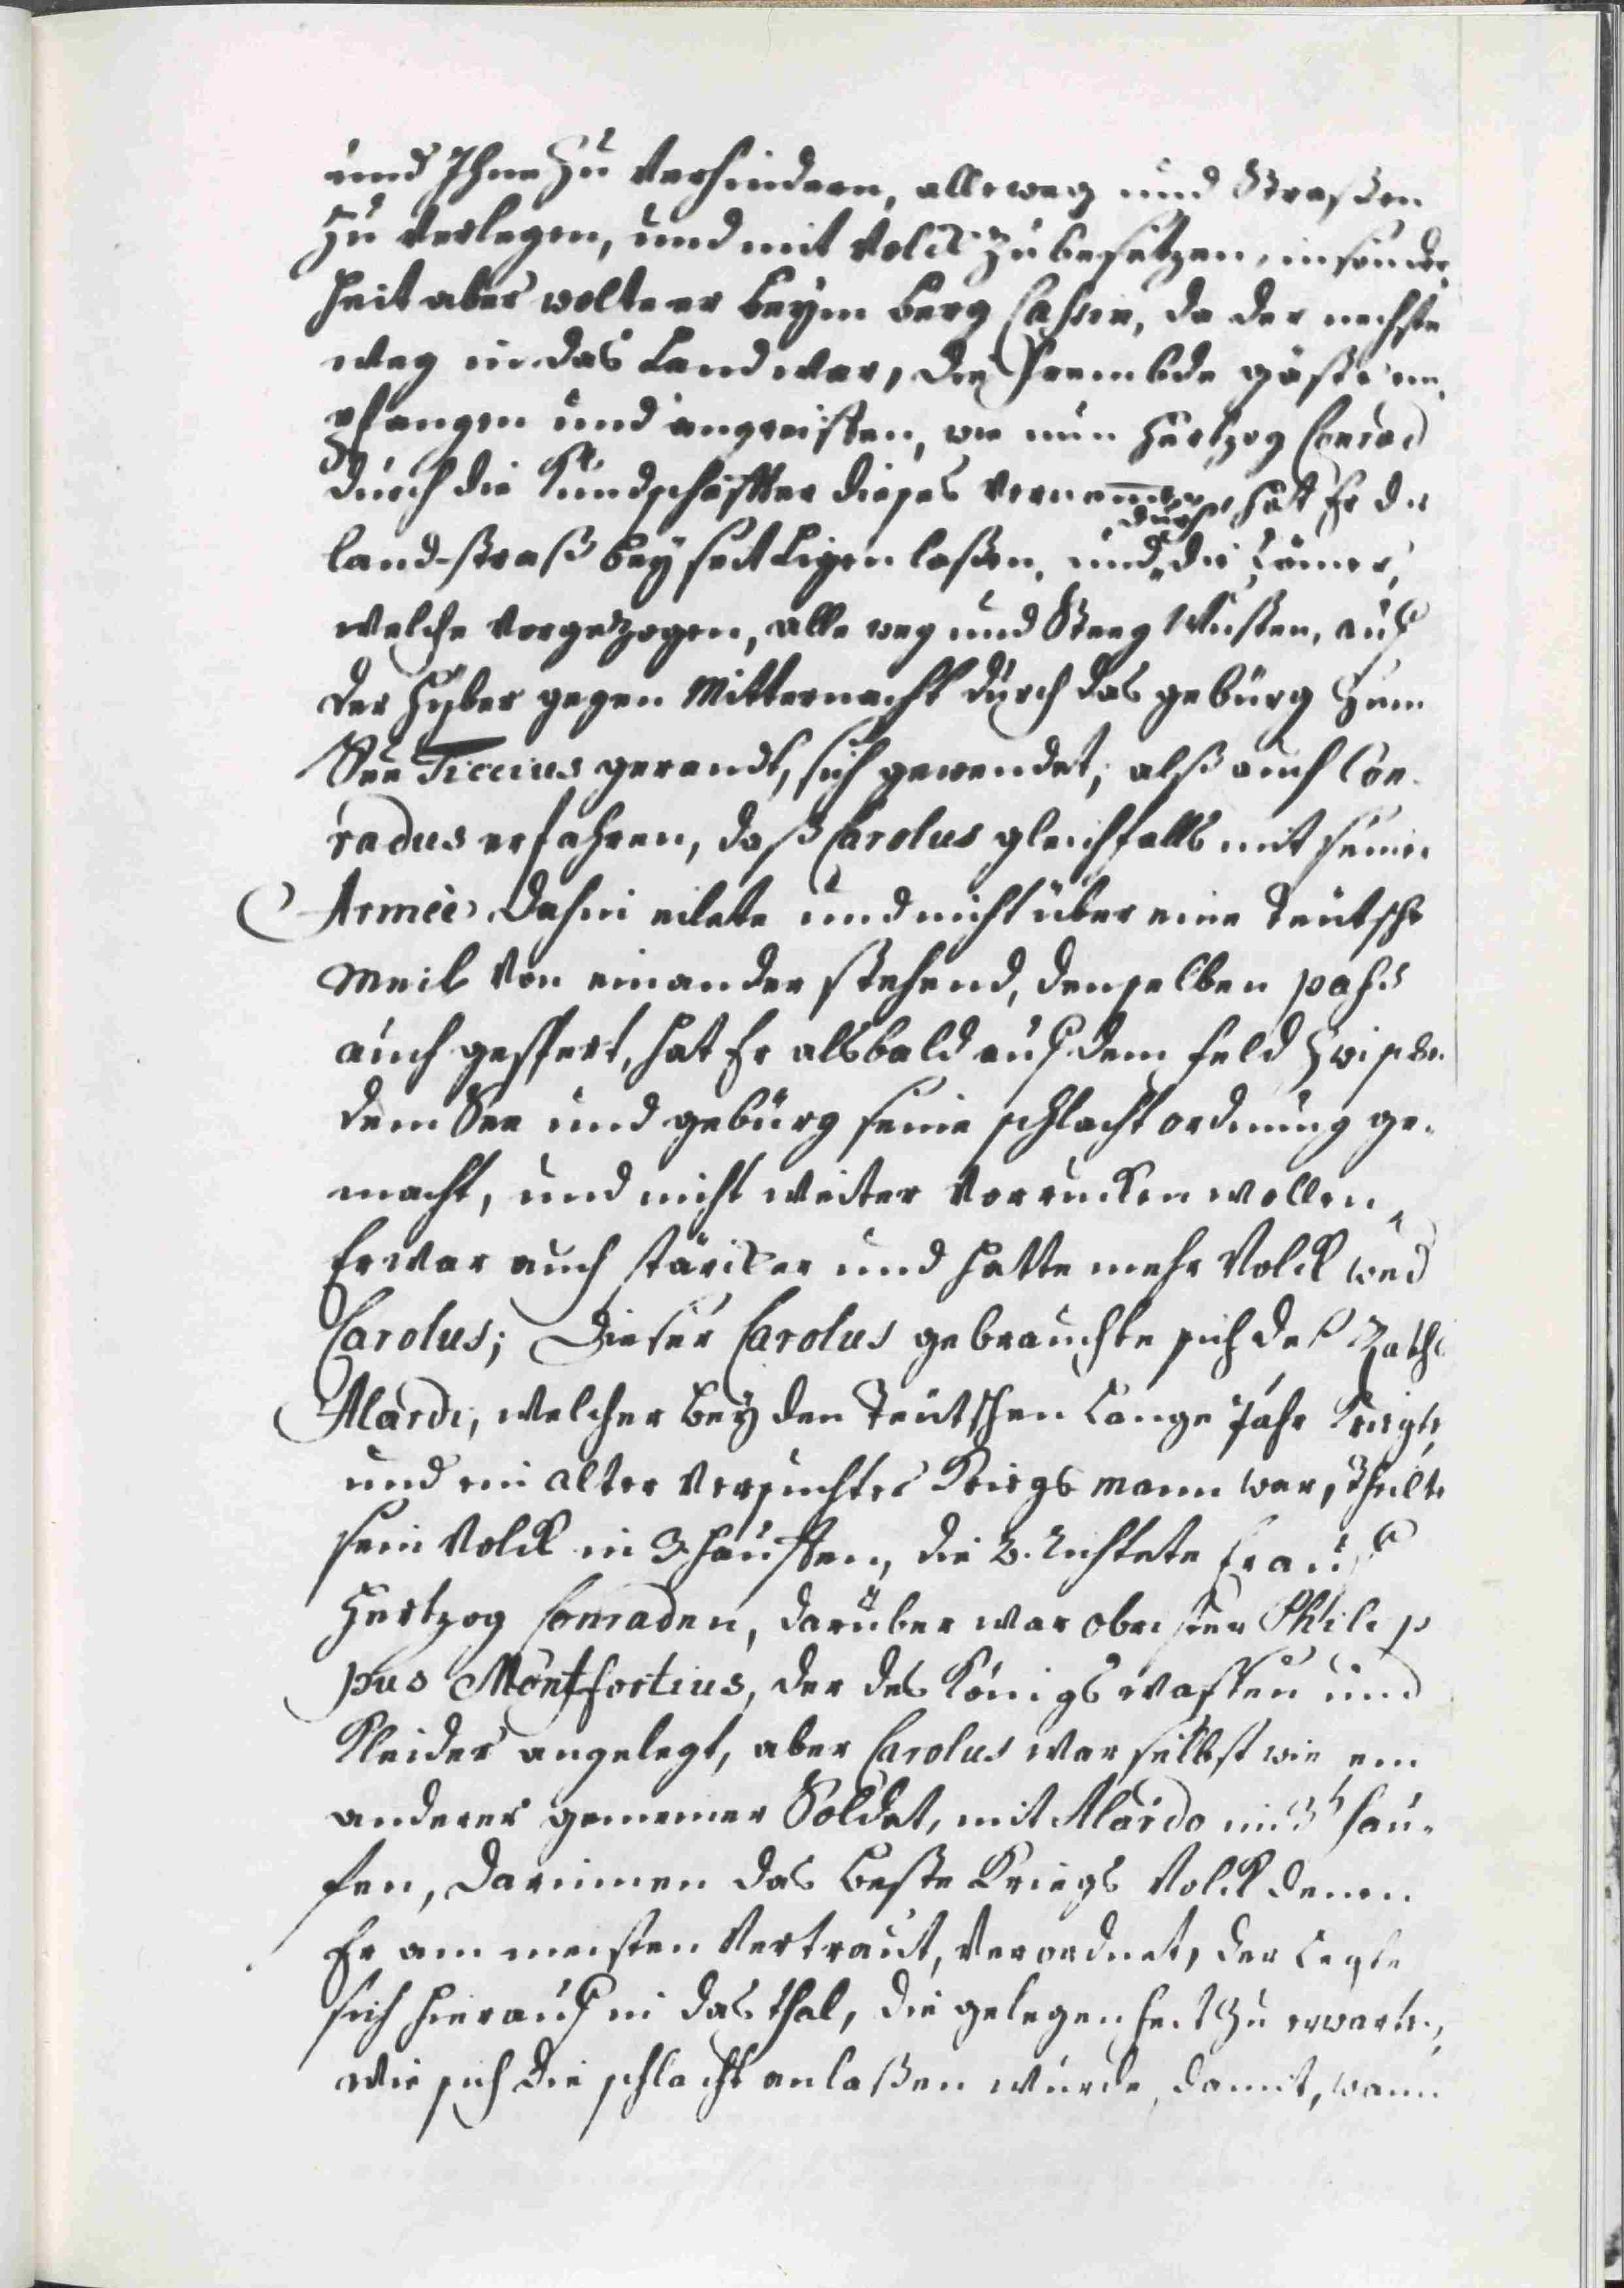 und Ihne zu verhindern, alle weg und Straßen
zu verlegen, und mit Volck zu besetzen, insonder-
heit aber wolte er beym berg Cassin, da der nechste
weg in das Land war, die frembde gäste em-
pfangen und angreiffen, wie nun Hertzog Conrad
durch die Kundschaffter dieses vernommen hatt Er die
land-straß bey seit ligen laßen, und durch die Römer,
welche vorgezogen, alle weg und Steeg wusten, auf
der Tyber gegen Mitternacht durch das gebürg zum
See Ficcius gerandt, sich gewendet, alß auch Con-
radus erfahren, daß Carolus gleichfalls mit seiner
Armeè dahin eilete und nicht über eine Teutsche
Meil von einander stehend, denselben pass
auch gespert, hat Er alsbald auf dem feld zwischen
dem See und gebürg seine schlacht ordnung ge-
macht, und nicht weiter vorrucken wollen,
Er war auch stärcker und hatte mehr Volck weder
Carolus; Dieser Carolus gebrauchte sich deß Raths
Alardi, welcher bey den Teutschen Lange Jahr kriegte,
und ein alter versuchter Kriegs mann war, theilte
sein Volck in 3. hauffen, die 2. richtete Er auf
Hertzog Conraden, darüber war obrister Philip-
pus Montfortius, der des Königs waffen und
Kleider angelegt, aber Carolus war selbst wie ein
anderer gemeiner Soldat, mit Alardo im 3t hau-
fen, darinnen das beste Kriegs Volck denen
Er am meisten vertraut, verordnet, der legte
sich hierauf in das thal, die gelegenheit zu erwarten,
wie sich die schlacht anlaßen wurde, damit, wann